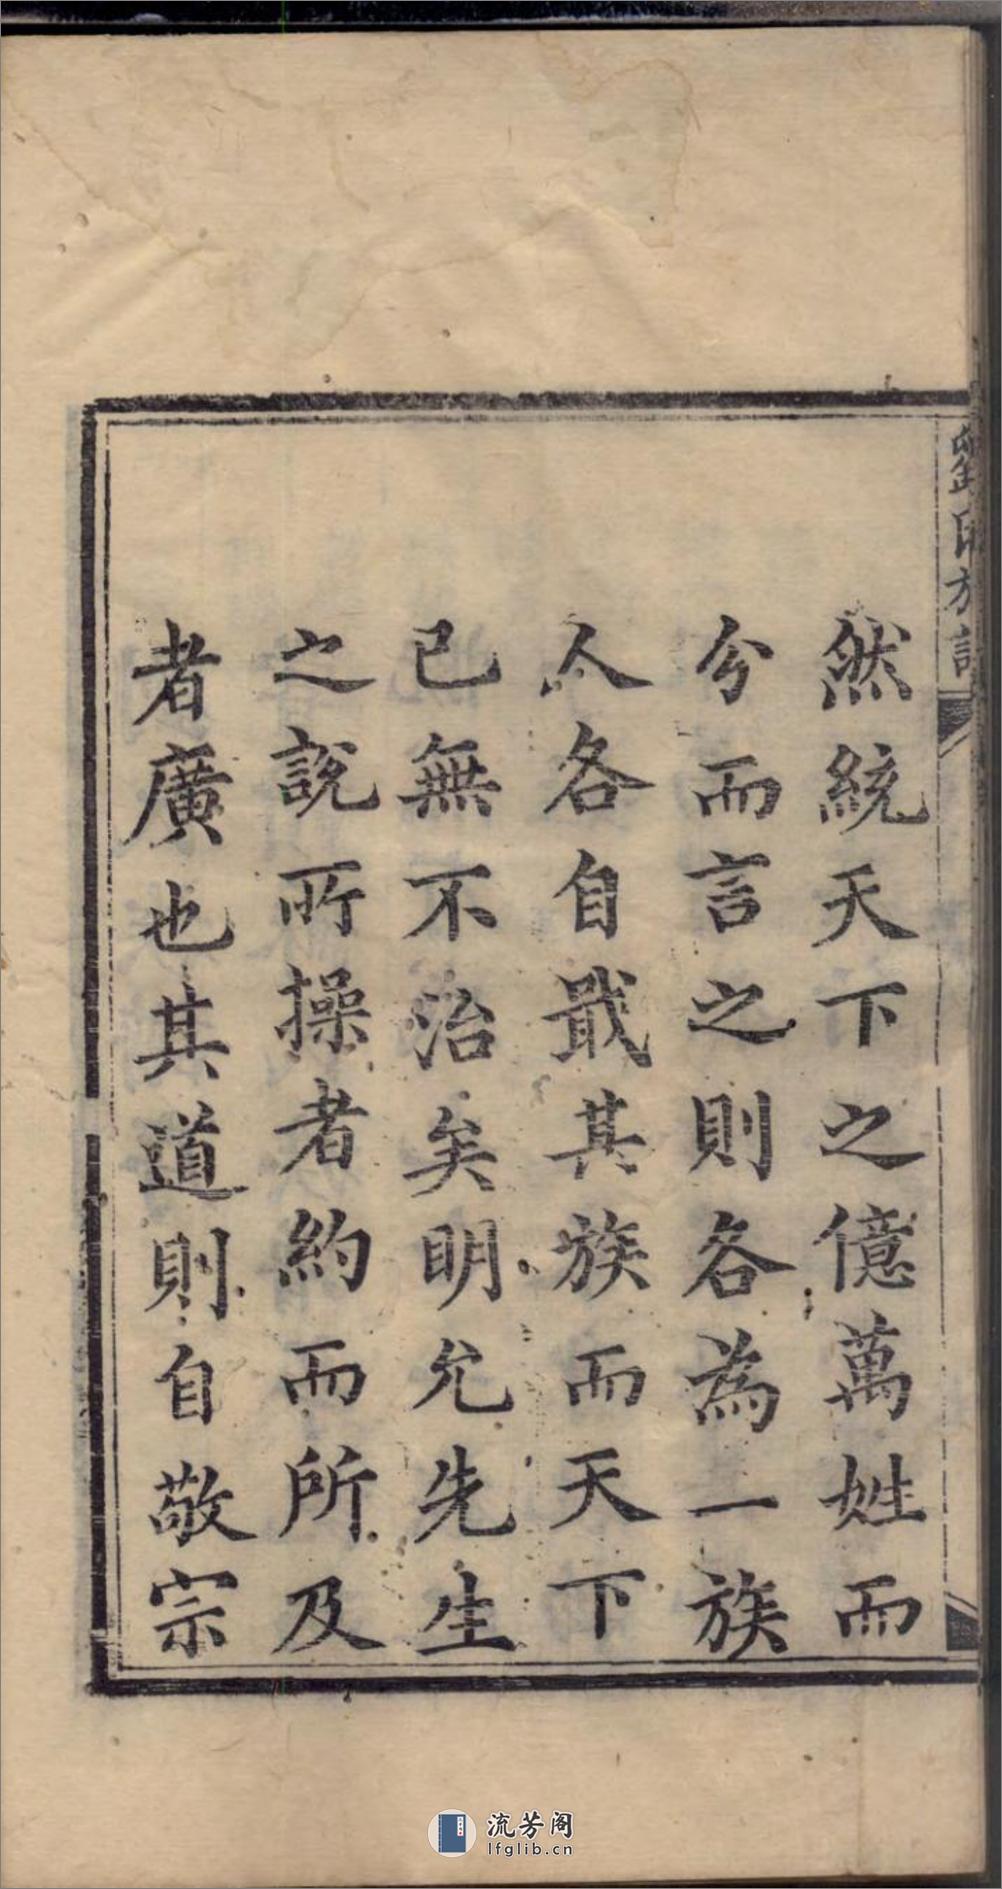 劉氏族譜
然統天下之億萬姓而
分而言之則各為一族
人各自戢其族而天下
已無不治矣明允先生
之說所操者約而所及
者廣也其道則自敬宗
流芳阁
lfglib.cn